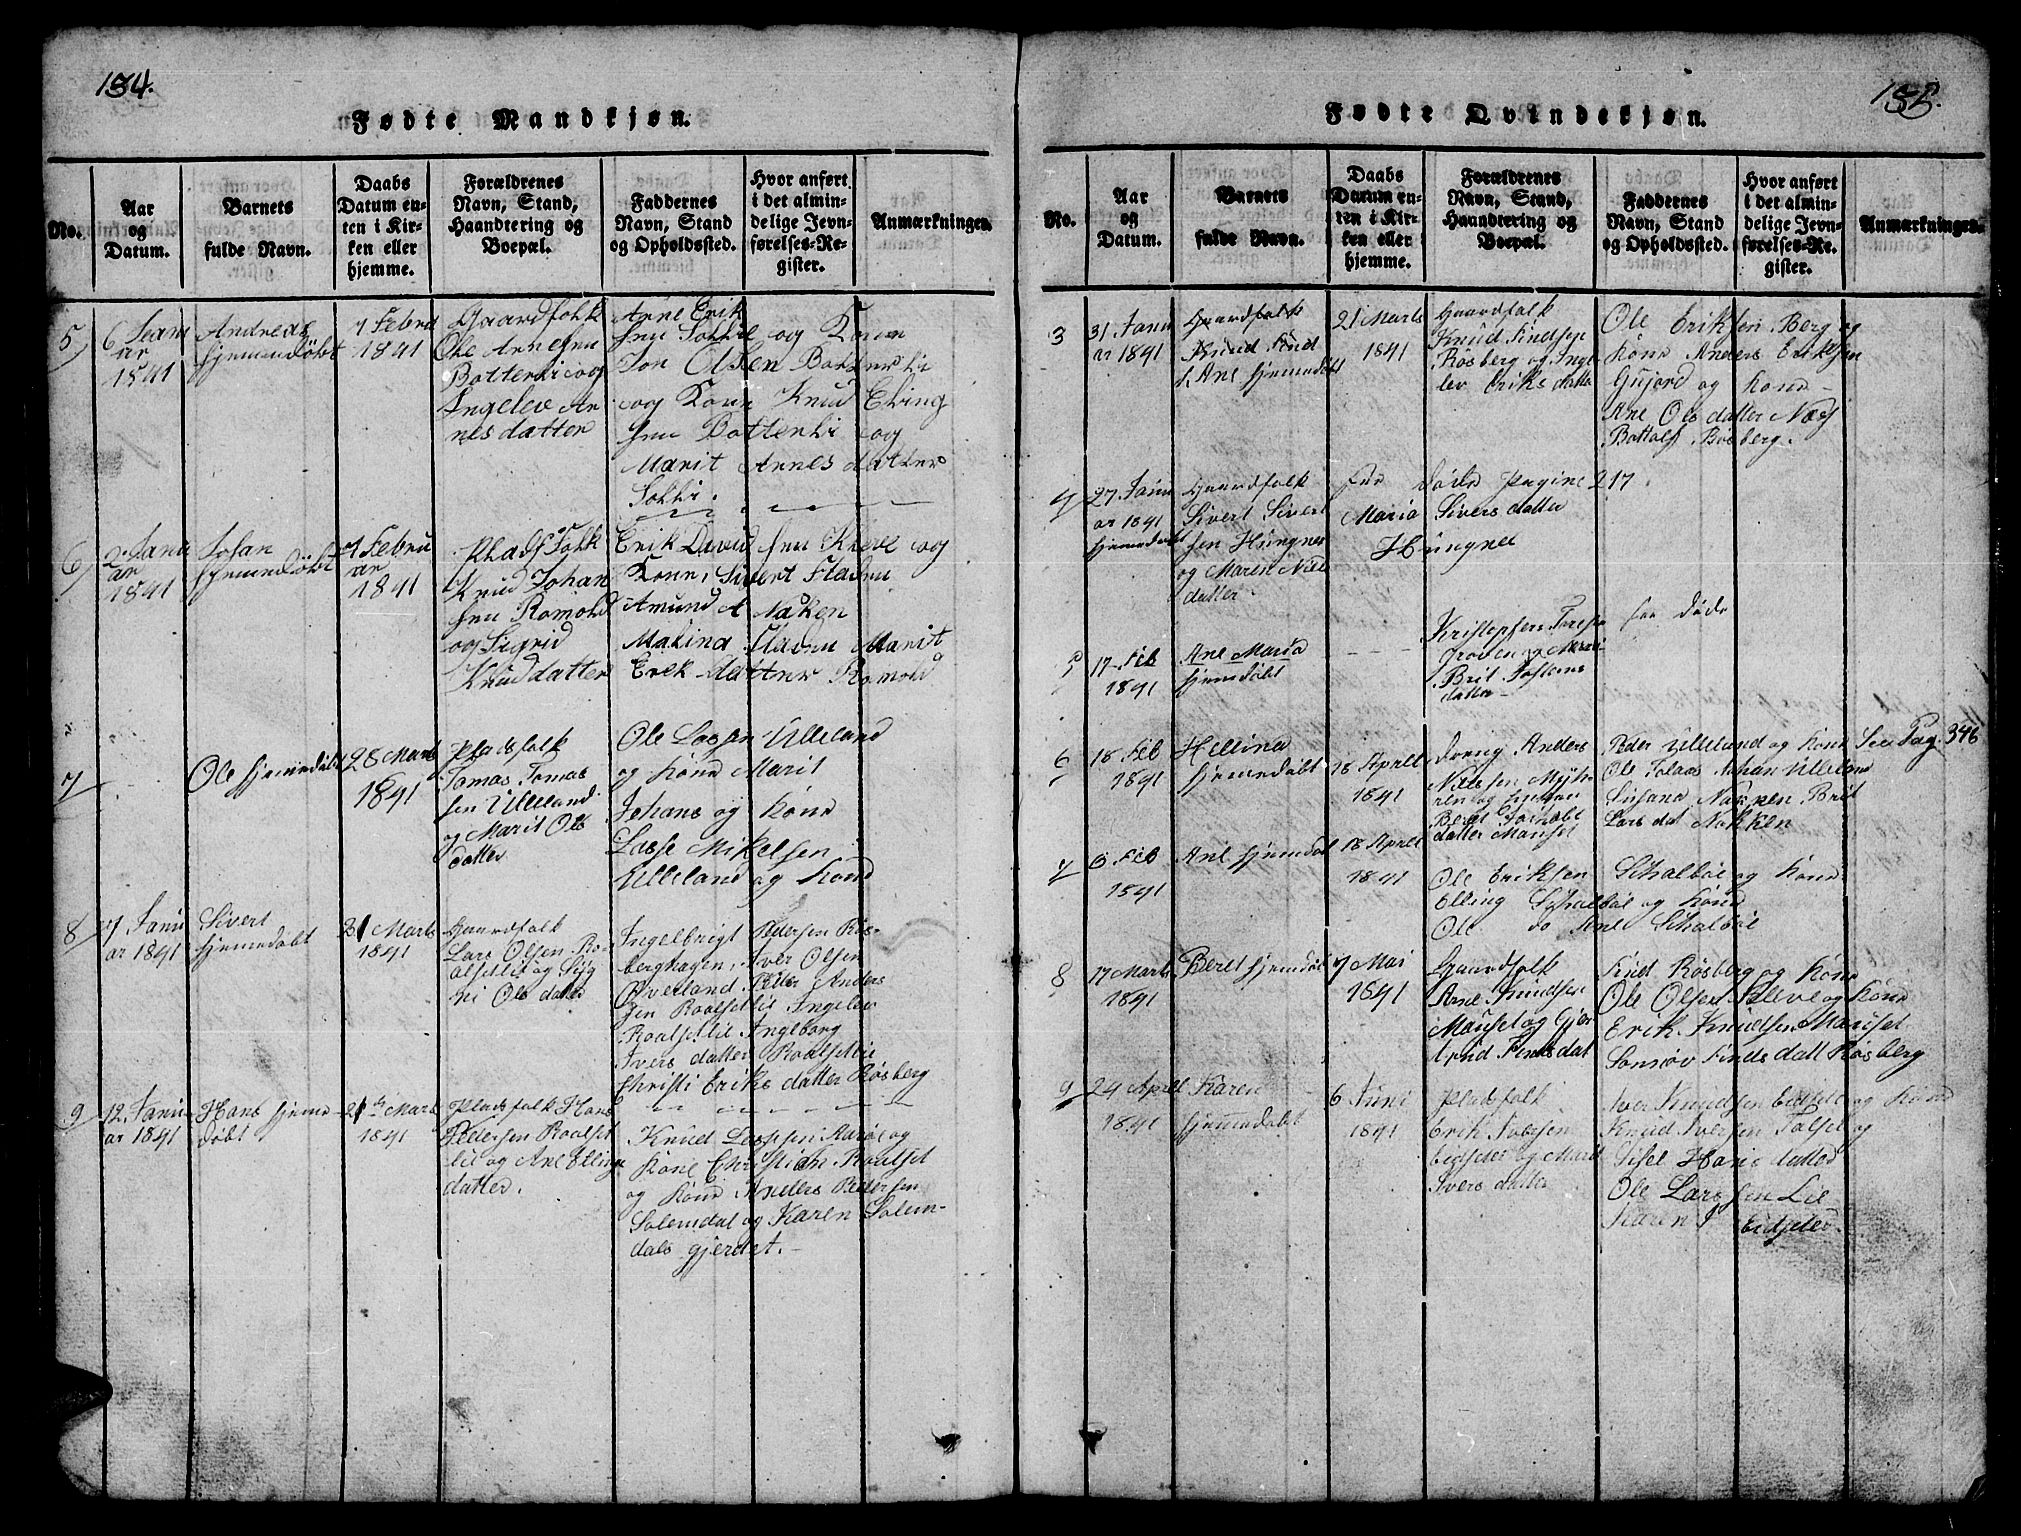 134.
Fødte Mandkjøn.
No.
Aar
og
Datum.
Barnets
fulde Navn.
Daabs
Datum en-
ten i Kir-
ken eller
hjemme.
Forældrenes
Navn, Stand,
Haandtering og
Boepæl.
Faddernes
Navn, Stand
og Opholdssted.
Hvor anført
i det almin-
delige Jevn-
førelses-Re-
gister.
Anmærkninger.
5
6 Janu
ar
1841
Andreas
hjemmdöbt
7 Febru
1841
Gaardfolk
Ole Arnesen
Bottenli og
Ingelev Ar
nes datter
Arne Erik
sen Sokki og Kone
Jon Olsen Bottenli
og Kone Knud Elling
sen Bottenli og
Marit Arnes datter
Sokki.
6
2 Janu
ar
1841
Johan
hjemmdöbt
7 Febru
ar
1841
Pladsfolk
Knud Johan
sen Romold
og Sigrid
Knud datter
Erik David sen Kleve og
Kone, Sivert Fladen
Amund A Naken
Malina Fladen Marit
Erik datter Romold
7
Ole hjemmdøbt
28 Marts
1841
Pladsfolk
Tomas Tomas
sen Ulleland
og Marit Ols
datter
Ole Lassen Ulleland
og Kone Marit
Johans og Kone
Lasse Mikelsen
Ulleland og Kone
8
7 Janu
ar 1841
Sivert
hjemmdøbt
21 Marts
1841
Gaardfolk
Lars Olsen Ro-
alsetlie og Sig
ni Ols datter
Ingelbrigt Pedersen Røs-
berghagen, Iver Olsen
Øveland Peder Anders
sen Roalsetlie Ingelev
Roalsetlie Ingeborg
Ivers datter Roalsetlie
Christi Eriks datter Røsberg
9
12 Janu
ar 1841
Hans hjemm
døbt
21 Marts
1841
Pladsfolk Hans
Pedersen Roalset
lie og Ane Ellings
datter.
Knud Lassen Aarøe og
Kone Christian Roalset
og Kone Anders Pedersen
Solemdal og Karen Solem-
dals gjerdet.
135.
Fødte Qvindekjøn.
No.
Aar
og
Datum.
Barnets
fulde Navn.
Daabs
Datum en-
ten i Kir-
ken eller
hjemme.
Forældrenes
Navn, Stand,
Haandtering og
Boepæl.
Faddernes
Navn, Stand
og Opholdssted.
Hvor anført
i det almin-
delige Jevn-
førelses-Re-
gister.
Anmærkninger.
3
31 Janu
ar 1841
Gaardfolk
Knud Find
Ane hjemmdøbt
21 Marts
1841
Gaardfolk
Knud Findsen
Røsberg og Inge
lev Eriks datter
Ole Eriksen Berg og
Kone Anders Eriksen
Gujord og Kone
Ane Ols datter Næs
Bottolf Røsberg.
4
27 Janu
ar 1841
hjemmdøbt
Gaardfolk
Sivert Sivert
sen Hungnes
og Maren Nils
datter
før døde Pagine 217.
Maria Sivers datter
Hungnes
5
17 Feb
1841
Ane Maria
hjemmdøbt
Kristopher
Brit
datter
før døde
6
18 Feb
1841
Hellina
hjemmdøbt
18 Aprel
1841
Dreng Anders
Nilssen Myh-
ren og
Beret
datter Mauset
Peder Ulleland og Kone
Ole Johan Ulleland
Susana Nakken Brit
Lars dat Nakken
See Pag. 346
7
6 Feb
1841
Ane hjemmdøbt
18 Aprel
1841
Ole Eriksen
Elling Schalbøe og Kone
Ole do Ane Schalbøe
Schalbøe og Kone
8
17 Marts
1841
Beret hjemmdøbt
7 Mai
1841
Gaardfolk
Arne Knudsen
Mauset og Gjer
trud Finds dat
Find Røsberg og Kone
Ole Olsen Kleve og Kone
Erik Knudsen Mauset
Finds datt Røsberg
9
24 Aprel
1841
Karen
hjemmdøbt
6 Juni
1841
Pladsfolk
Erik Iversen
Eidseter og Marit
Ivers datter
Iver Knudsen Eidseter og Kone
Knud Iversen Talset og
Sisel Hans datter
Ole Larssen Lie
Karen J Eidseter.